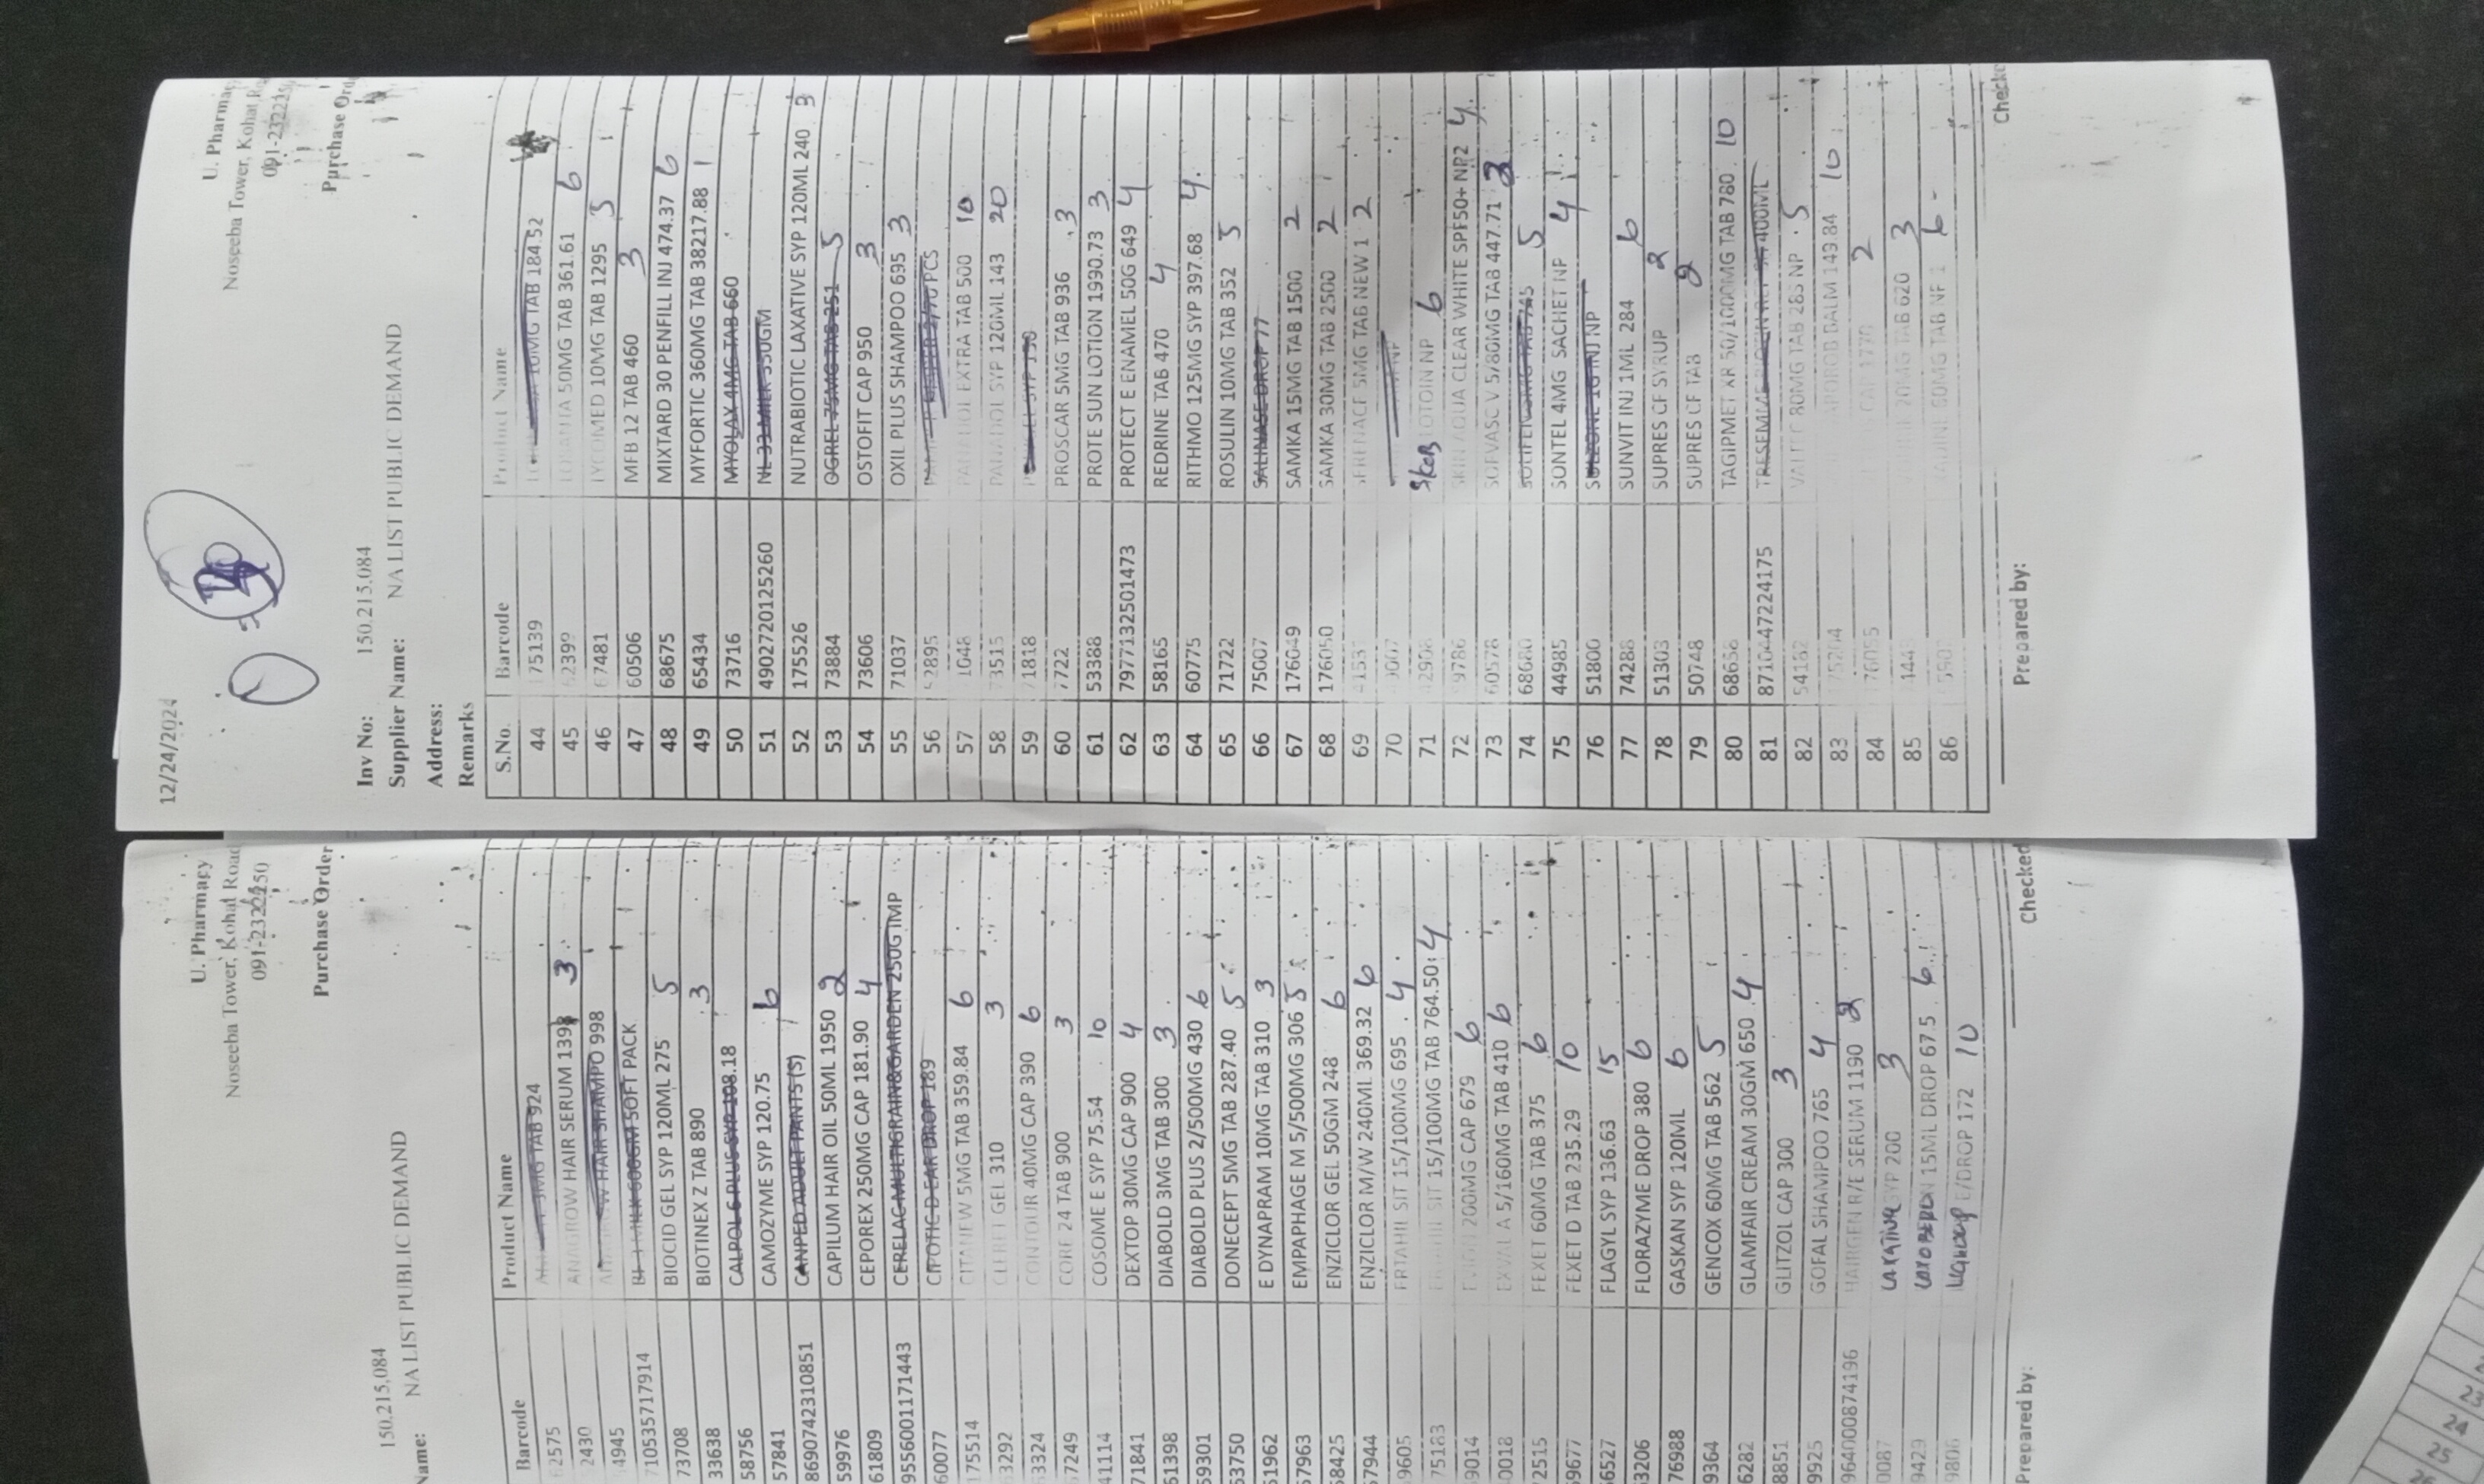 U. Pharmacy
Noseeba Tower, Kohat Road
091-2322250
Purchase Order
150.215.084
Name: NA LIST PUBLIC DEMAND
Barcode Product Name
62575 TAB 924
2430 ANAGROW HAIR SERUM 1398 3
4945 HAIR SHAMPO 998
7105357179​14 MILK 600GM SOFT PACK
73708 BIOCID GEL SYP 120ML 275 5
33638 BIOTINEX Z TAB 890 3
58756 CALPOL 6 PLUS SYP 108.18
57841 CAMOZYME SYP 120.75 6
8690742310851 CANPED ADULT PANTS (S)
59976 CAPILUM HAIR OIL 50ML 1950 2
61809 CEPOREX 250MG CAP 181.90 4
9556001171443 CERELAC MULTIGRAIN&GARDEN 250G IMP
60077 CIPOTIC D EAR DROP 189
175514 CITANEW 5MG TAB 359.84 6
63292 CLERET GEL 310 3
63324 CONTOUR 40MG CAP 390 6
67249 CORE 24 TAB 900 3
41114 COSOME E SYP 75.54 10
71841 DEXTOP 30MG CAP 900 4
51398 DIABOLD 3MG TAB 300 3
59301 DIABOLD PLUS 2/500MG 430 6
53750 DONECEPT 5MG TAB 287.40 5
51962 E DYNAPRAM 10MG TAB 310 3
57963 EMPAPHAGE M 5/500MG 306 5
58425 ENZICLOR GEL 50GM 248 6
57944 ENZICLOR M/W 240ML 369.32 6
9605 ERTAHII SIT 15/100MG 695 4
75183 SIT 15/100MG TAB 764.50 4
59014 200MG CAP 679 6
0018 EXVAL A 5/160MG TAB 410 6
72515 FEXET 60MG TAB 375 6
59677 FEXET D TAB 235.29 10
66527 FLAGYL SYP 136.63 15
53206 FLORAZYME DROP 380 6
76988 GASKAN SYP 120ML 6
9364 GENCOX 60MG TAB 562 5
6282 GLAMFAIR CREAM 30GM 650 4
8851 GLITZOL CAP 300 3
9925 GOFAL SHAMPOO 765 4
9640000874196 HAIRGEN R/E SERUM 1190 2
0087 LAXATIVE SYP 200 3
9429 15ML DROP 67.5 6
9806 E/DROP 172 10
Prepared by: Checked
12/24/2024
U. Pharmacy
Noseeba Tower, Kohat Ro
091-232225
Purchase Ord
Inv No: 150.215.084
Supplier Name: NA LIST PUBLIC DEMAND
Address:
Remarks
S.No. Barcode Product Name
44 175139 10MG TAB 184.52
45 62399 50MG TAB 361.61 6
46 67481 LYCOMED 10MG TAB 1295 3
47 60506 MFB 12 TAB 460 3
48 68675 MIXTARD 30 PENFILL INJ 474.37 6
49 65434 MYFORTIC 360MG TAB 38217.88 1
50 73716 MYOLAX 4MG TAB 660
51 4902720125260 NL 33 MILK 350GM
52 175526 NUTRABIOTIC LAXATIVE SYP 120ML 240 3
53 73884 OGREL 75MG TAB 251 5
54 73606 OSTOFIT CAP 950 3
55 71037 OXIL PLUS SHAMPOO 695 3
56 52895 PCS
57 1048 PANADOL EXTRA TAB 500 10
58 73515 PANADOL SYP 120MIL 143 20
59 71818 SYP 190
60 7722 PROSCAR 5MG TAB 936 3
61 53388 PROTE SUN LOTION 1990.73 3
62 7977132501473 PROTECT E ENAMEL 50G 649 4
63 58165 REDRINE TAB 470 4
64 60775 RITHMO 125MG SYP 397.68 4
65 71722 ROSULIN 10MG TAB 352 5
66 75007 SALINASE DROP 77
67 176049 SAMKA 15MG TAB 1500 2
68 176050 SAMKA 30MG TAB 2500 2
69 SERENACE 5MG TAB NEW 1 2
70 NP
71 42908 LOTOIN NP 6
72 59786 SKIN AQUA CLEAR WHITE SPF50+ NP2 4
73 60578 SOFVASC V 5/80MG TAB 447.71 3
74 68680 TAB 745 5
75 44985 SONTEL 4MG SACHET NP 4
76 51800 SULZONE 1G INJ NP
77 74288 SUNVIT INJ 1ML 284 6
78 51303 SUPRES CF SYRUP 2
79 50748 SUPRES CF TAB 2
80 68658 TAGIPMET XR 50/1000MG TAB 780 10
81 8710447224175 TRESEMME 400ML
82 54182 VALTEC 80MG TAB 285 NP 5
83 75204 VAPOROB BALM 149.84 10
84 76055 CAP 1770 2
85 20MG TAB 620 3
86 60MG TAB NF 1 6
Prepared by: Checke
23
24
25
26